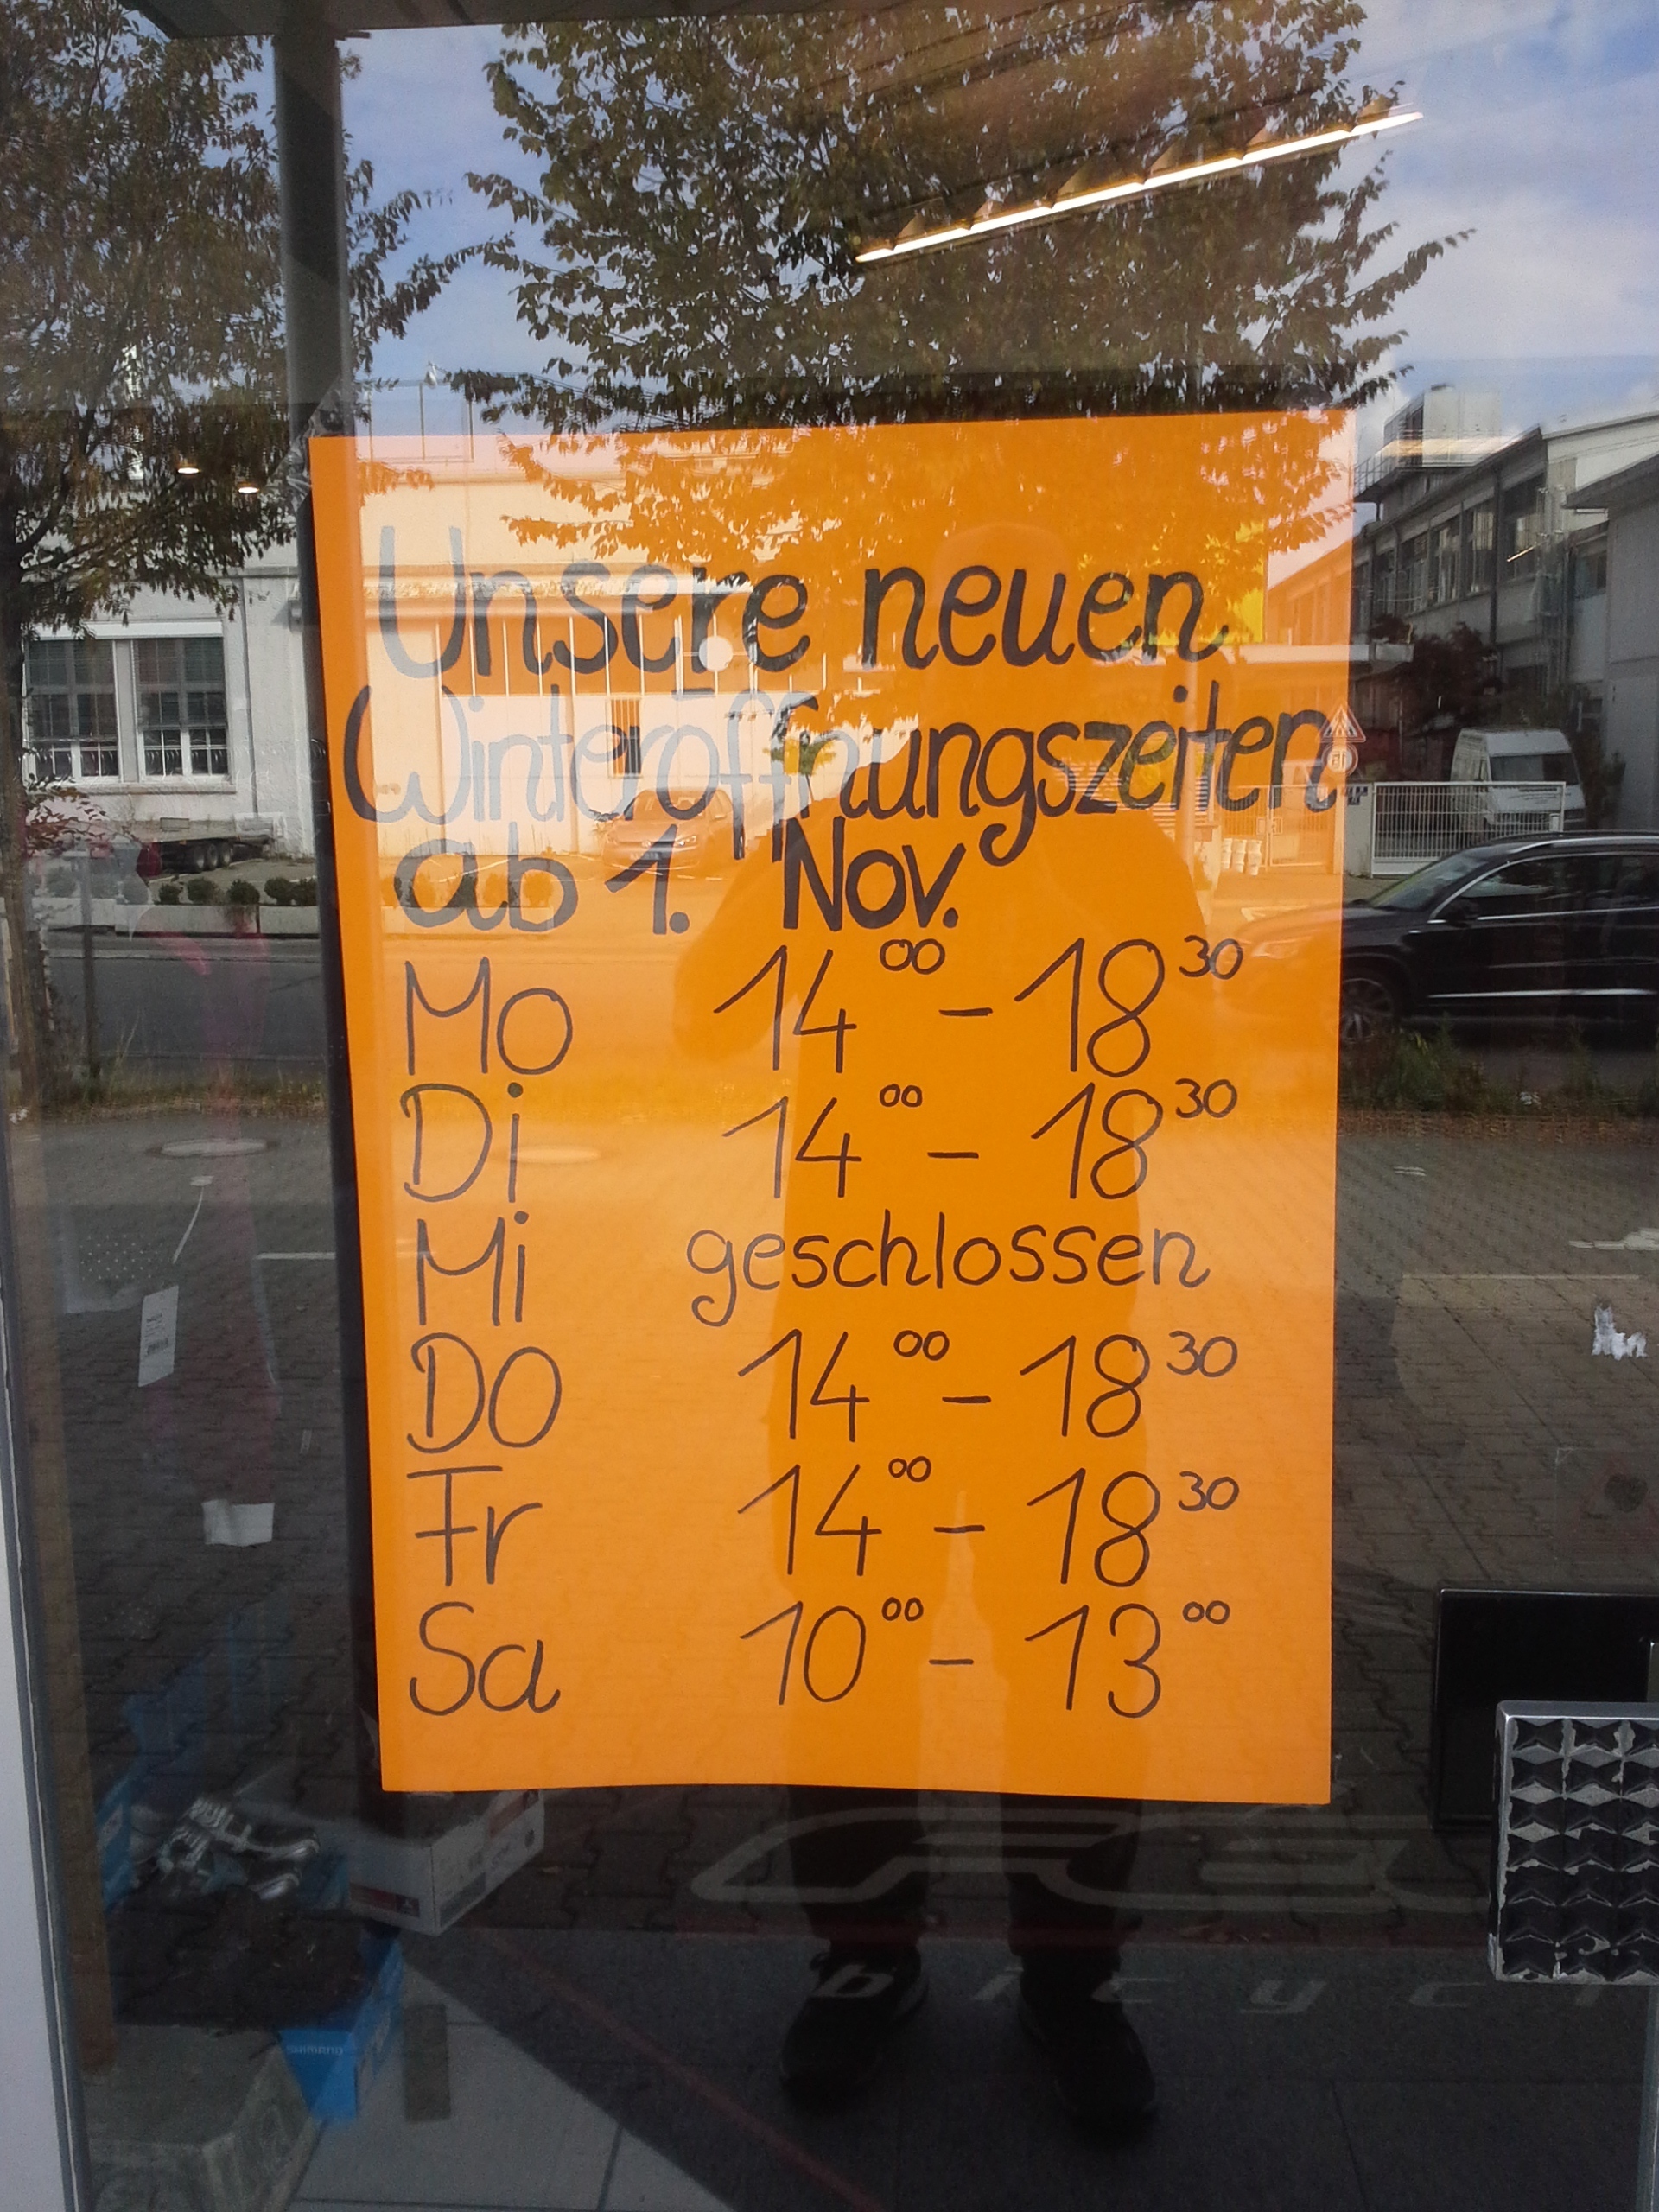 Unsere neuen
Winteröffnungszeiten
ab 1. Nov.
Mo 14 00 - 18 30
Di 14 00 - 18 30
Mi geschlossen
DO 14 00 - 18 30
Fr 14 00 - 18 30
Sa 10 00 - 13 00